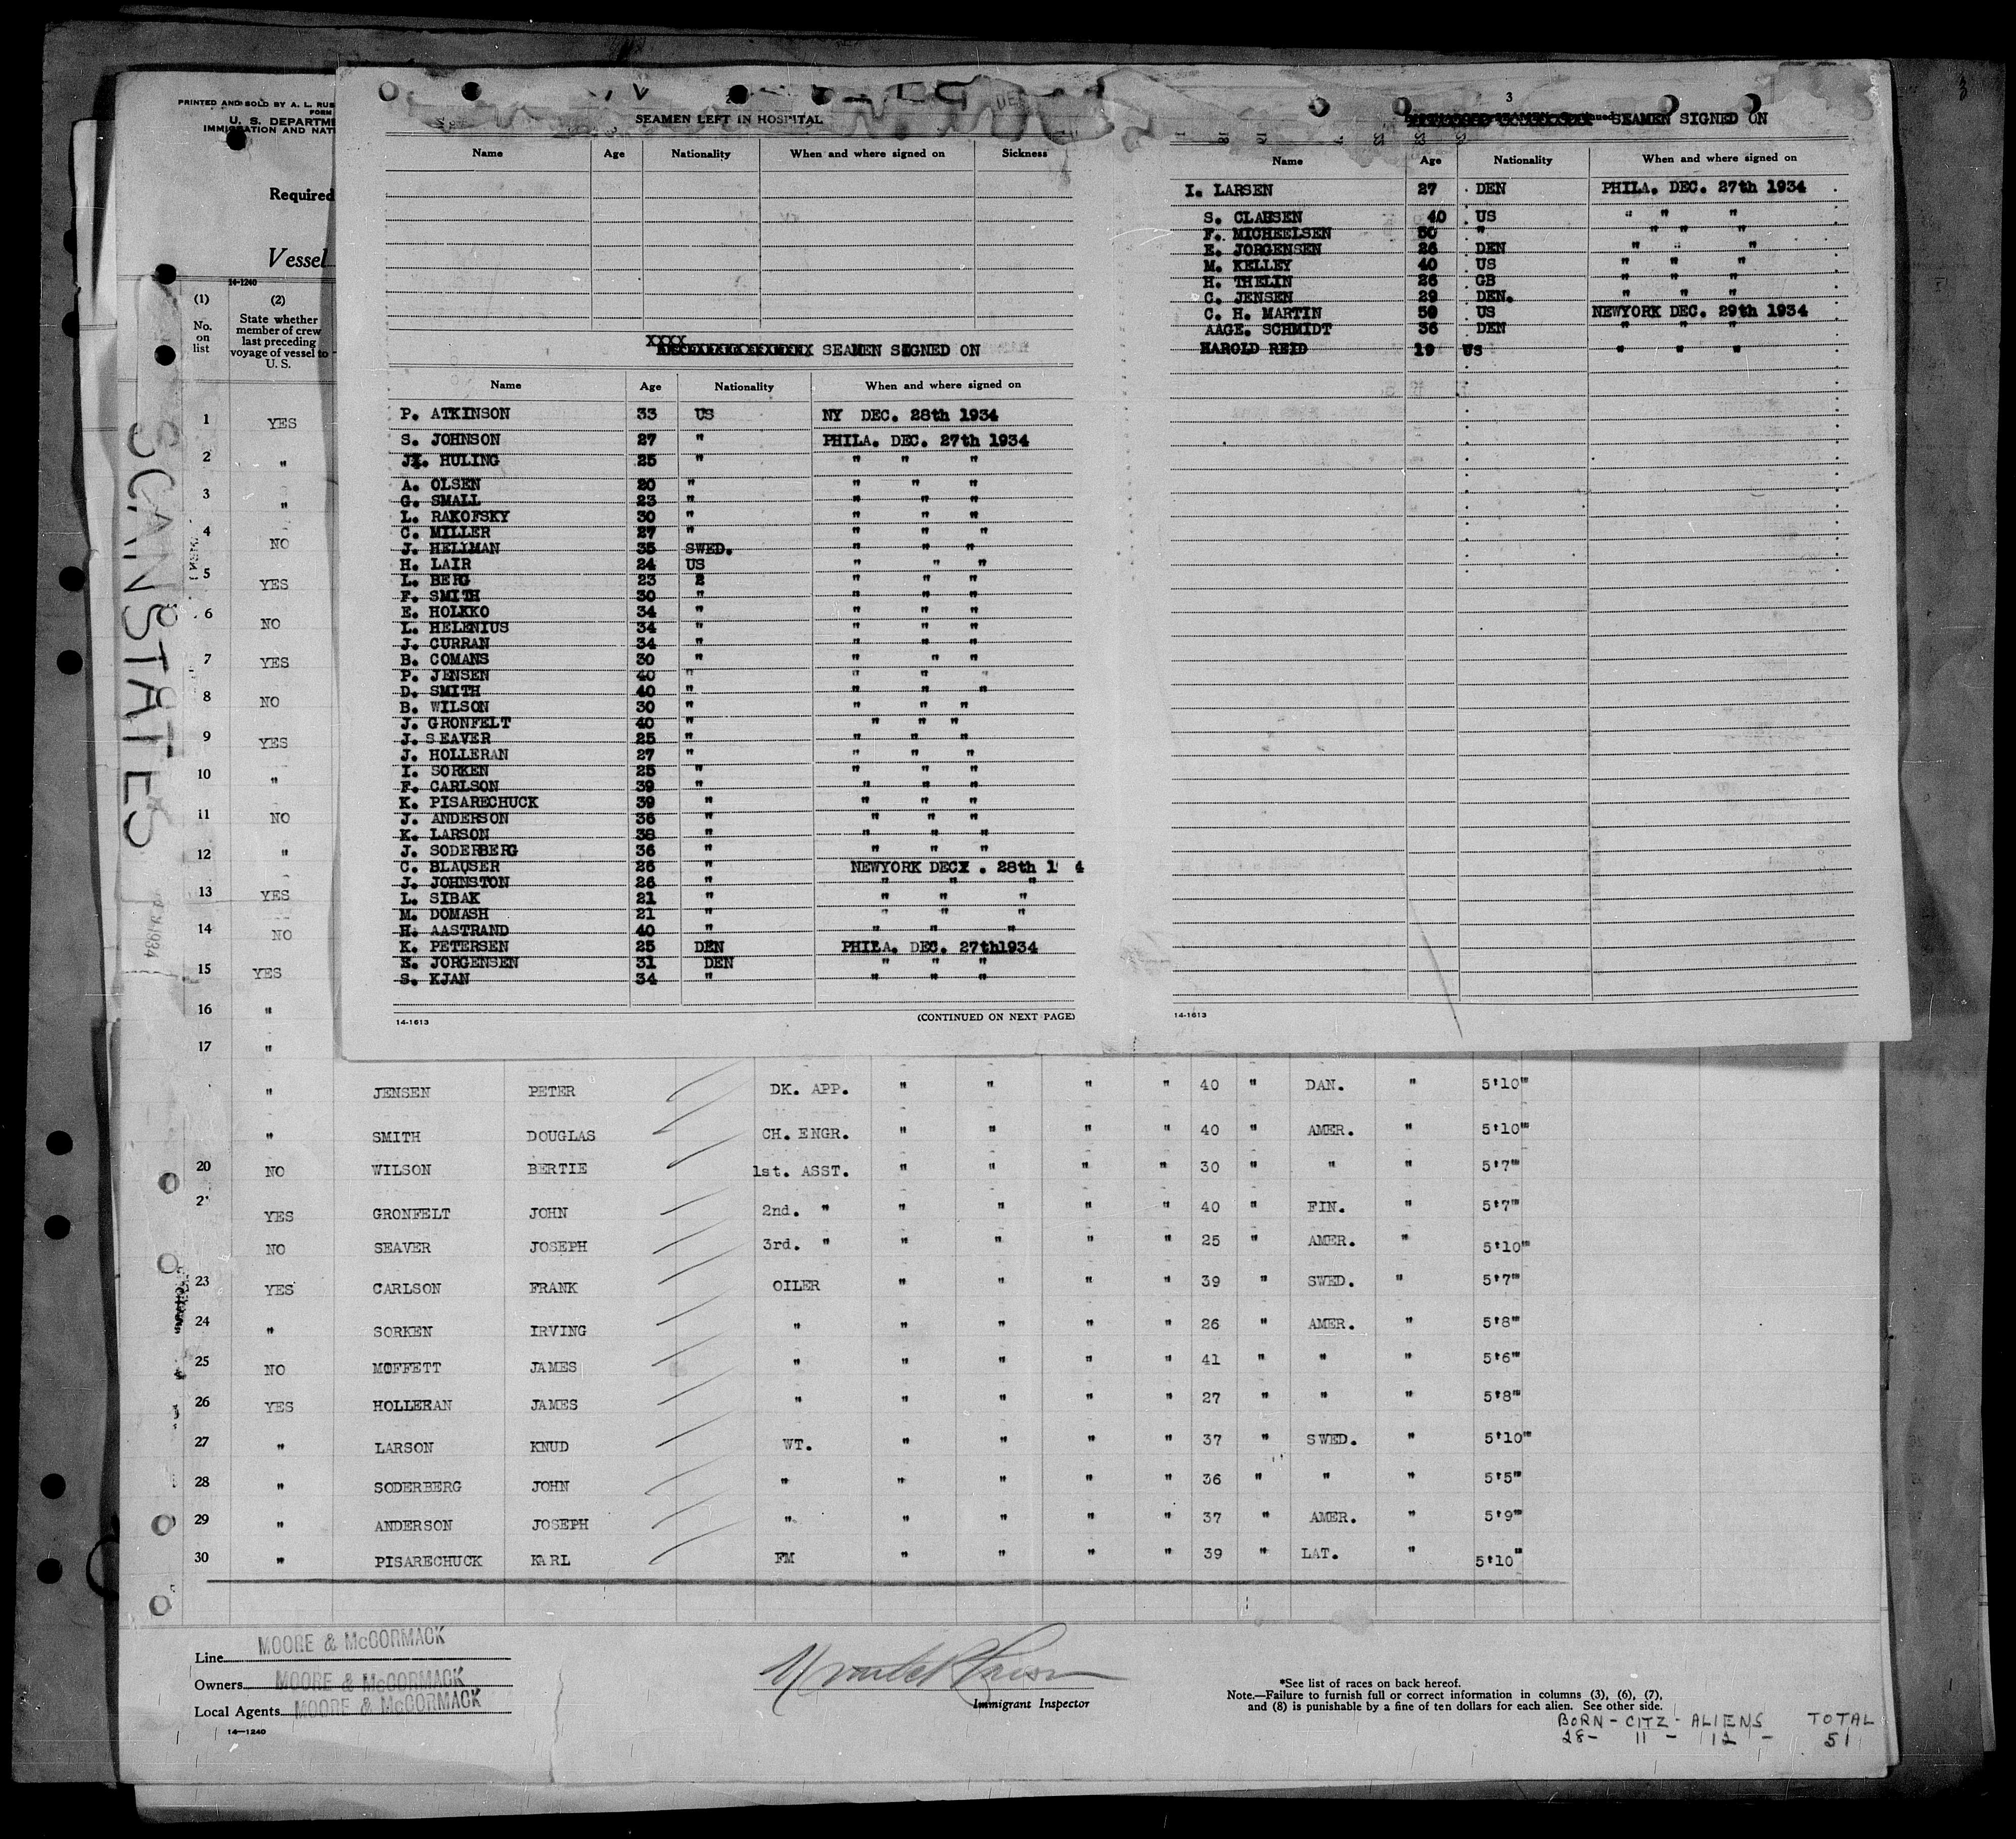 PRINTED AND SOLD BY A. L. RUS
FORM
U. S. DEPARTME
IMMIGRATION AND NAT
Required
Vessel
14-1240
(1) (2)
No. on list
State whether member of crew last preceding voyage of vessel to U. S.
1 YES
2 "
3 "
4 NO
5 YES
6 NO
7 YES
8 NO
9 YES
10 "
11 NO
12 "
13 YES
14 NO
15 YES
16 "
17 "
SCANSTATES
2
SEAMEN LEFT IN HOSPITAL
Name Age Nationality When and where signed on Sickness
SEAMEN SIGNED ON
Name Age Nationality When and where signed on
P. ATKINSON 33 US NY DEC. 28th 1934
S. JOHNSON 27 " PHILA. DEC. 27th 1934
JX. HULING 25 " " " "
A. OLSEN 20 " " " "
G. SMALL 23 " " " "
L. RAKOFSKY 30 " " " "
C. MILLER 27 " " " "
J. HELLMAN 35 SWED. " " "
H. LAIR 24 US " " "
L. BERG 23 2 " " "
F. SMITH 30 " " " "
E. HOLKKO 34 " " " "
L. HELENIUS 34 " " " "
J. CURRAN 34 " " " "
B. COMANS 30 " " " "
P. JENSEN 40 " " " "
D. SMITH 40 " " " "
B. WILSON 30 " " " "
J. GRONFELT 40 " " " "
J. SEAVER 25 " " " "
J. HOLLERAN 27 " " " "
I. SORKEN 25 " " " "
F. CARLSON 39 " " " "
K. PISARECHUCK 39 " " " "
J. ANDERSON 36 " " " "
K. LARSON 38 " " " "
J. SODERBERG 36 " " " "
C. BLAUSER 26 " NEWYORK DECX . 28th 1 4
J. JOHNSTON 26 " " " "
L. SIBAK 21 " " " "
M. DOMASH 21 " " " "
H. AASTRAND 40 " " " "
K. PETERSEN 25 DEN PHILA. DEC. 27th1934
E. JORGENSEN 31 DEN " " "
S. KJAN 34 " " " "
14-1613 (CONTINUED ON NEXT PAGE)
3
SEAMEN SIGNED ON
Name Age Nationality When and where signed on
I. LARSEN 27 DEN PHILA. DEC. 27th 1934
S. CLAUSEN 40 US " " "
F. MICHEELSEN 50 " " " "
E. JORGENSEN 26 DEN " " "
M. KELLEY 40 US " " "
H. THELIN 26 GB " " "
C. JENSEN 29 DEN. " " "
C. H. MARTIN 50 US NEWYORK DEC. 29th 1934
AAGE. SCHMIDT 36 DEN " " "
HAROLD REID 19 US " " "
14-1613
" JENSEN PETER DK. APP. " " " " 40 " DAN. " 5'10"
" SMITH DOUGLAS CH. ENGR. " " " " 40 " AMER. " 5'10"
20 NO WILSON BERTIE 1st. ASST. " " " " 30 " " " 5'7"
2 YES GRONFELT JOHN 2nd. " " " " " 40 " FIN. " 5'7"
NO SEAVER JOSEPH 3rd. " " " " " 25 " AMER. " 5'10"
23 YES CARLSON FRANK OILER " " " " 39 " SWED. " 5'7"
24 " SORKEN IRVING " " " " " 26 " AMER. " 5'8"
25 NO MOFFETT JAMES " " " " " 41 " " " 5'6"
26 YES HOLLERAN JAMES " " " " " 27 " " " 5'8"
27 " LARSON KNUD WT. " " " " 37 " SWED. " 5'10"
28 " SODERBERG JOHN " " " " " 36 " " " 5'5"
29 " ANDERSON JOSEPH " " " " " 37 " AMER. " 5'9"
30 " PISARECHUCK KARL FM " " " " 39 " LAT. " 5'10"
Line MOORE & McCORMACK
Owners MOORE & McCORMACK
Local Agents MOORE & McCORMACK
14—1240
Immigrant Inspector
*See list of races on back hereof.
Note.—Failure to furnish full or correct information in columns (3), (6), (7),
and (8) is punishable by a fine of ten dollars for each alien. See other side.
BORN - CITZ - ALIENS TOTAL
28 - 11 - 12 - 51